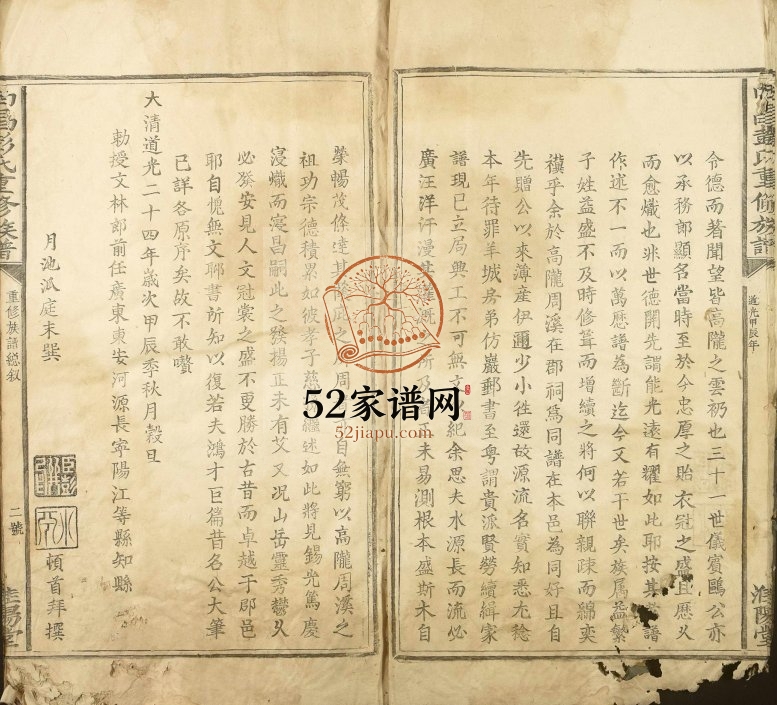 道光甲辰年
淮陽堂
令德而著聞望皆高隴之雲礽也三十一世儀賓鷗公亦
以承務郎顯名當時至於今忠厚之貽衣冠之盛且歷久
而愈熾也非世德開先謂能光遠有耀如此耶按其譜
作述不一而以萬歷譜為斷迄今又若干世矣族属益繁
子姓益盛不及時修葺而增續之將何以聯親疎而綿奕
禩乎余於高隴周溪在郡祠爲同譜在本邑為同好且自
先贈公以來薄産伊邇少小徃還故源流名實知悉尤稔
本年待罪羊城房弟仿巖郵書至粤謂貴派賢勞續緝家
譜現已立局興工不可無文紀余思夫水源長而流必
廣汪洋汗漫其灌溉所及正未易測根本盛斯木自
榮暢茂條達其之周自無窮以高隴周溪之
祖功宗德積累如彼孝子慈繼述如此將見錫光篤慶
寖熾而寖昌嗣此之發揚正未有艾又况山岳靈秀鬱久
必發安見人文冠裳之盛不更勝於古昔而卓越于郡邑
耶自愧無文聊書所知以復若夫鴻才巨篇昔名公大筆
已詳各原序矣故不敢贅
大清道光二十四年歲次甲辰季秋月穀旦
勅授文林郎前任廣東東安河源長寧陽江等縣知縣
月池泒庭末巽
頓首拜撰
西昌彭氏重修族譜
重修族譜總叙
二號
淮陽堂
52家谱网
52jiapu.com